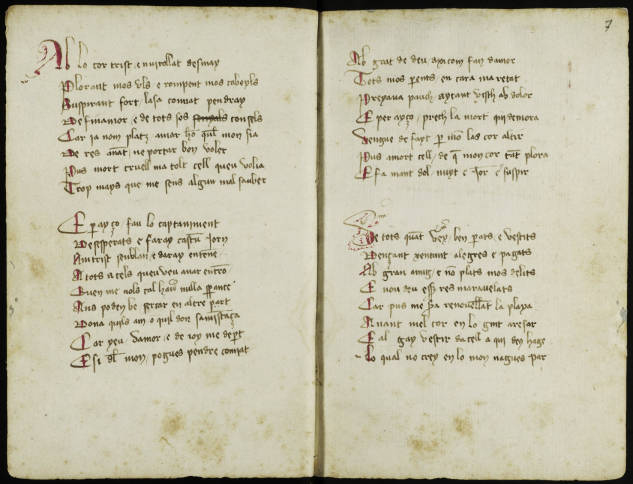 Ab lo cor trist e nvirollat desmay
Plorant mos uls e rompent mos cabeyls
Suspirant fort lasa comiat pendray
De finamor e de tots sos consels
Car ja nom platz amar ho quel mon sia
De res amat ne portar bon voler
Pus mort cruell ma tolt cell queu volia
Trop mays que me sens algun mal saber
E per ayço fau lo captaniment
Desesperats e faray cascun jorn
A tots acels queu veu amar
Quen me nols cal haver nulla
Ans poden be sercar en altre part
Dona quils am o quil don
Car yeu damor e de joy me depart
E si del mon pogues pendre comiat
7
Ab grat de deu axi com fan damor
Tots mos parents en cara ma
Presaua pauch aytant visch ab dolor
E per ayço prech la mort qui demora
Vengue de fayt per mon las cor alcir
Pus amort cell de que mon cor tant plora
E fa mant dol nuyt e jor e suspir
De tots quant vey ben parats e vestits
Dençant xentant alegres e pagats
Ab gran anug e non plats mos delits
E non deu esser res maravelats
Car pus me sa renovellat la playa
Avant mel cor en lo gint aresar
E al gay vestir dacell a qui deu haye
Lo qual no crey en lo mon nagues par